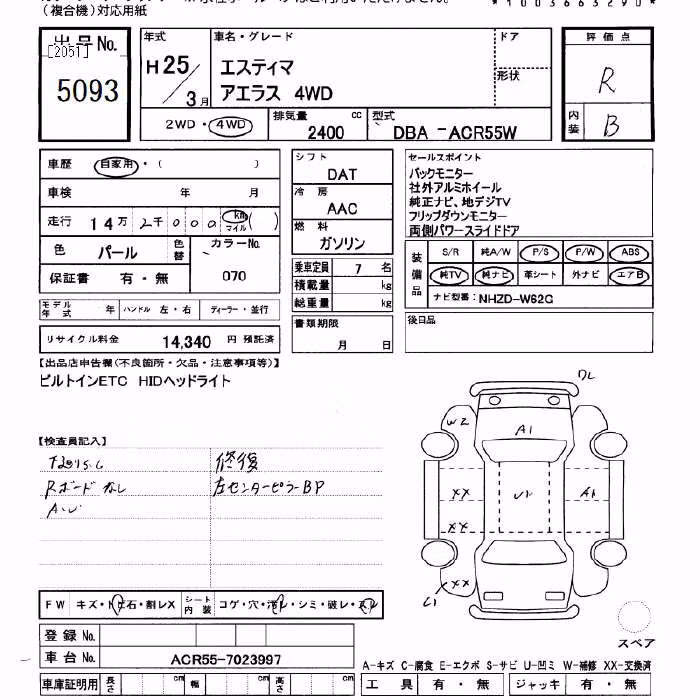 (複合機)対応用紙
*1003663290*
出品No.
[2051]
5093
年式
H25/3月
車名・グレード
エスティマ
アエラス 4WD
ドア
形状
評価点
R
内装
B
2WD・4WD
排気量
2400 cc
型式
DBA -ACR55W
車歴 自家用・( )
車検 年 月
走行 14万2千000 km マイル ( )
色 パール 色替
カラーNo.
070
保証書 有・無
モデル年式 年 ハンドル 左・右 ディーラー・並行
リサイクル料金 14,340 円 預託済
シフト
DAT
冷房
AAC
燃料
ガソリン
乗車定員 7 名
積載量 kg
総重量 kg
書類期限
月 日
セールスポイント
バックモニター
社外アルミホイール
純正ナビ、地デジTV
フリップダウンモニター
両側パワースライドドア
装備品
S/R 純A/W P/S P/W ABS
純TV 純ナビ 革シート 外ナビ エアB
ナビ型番: NHZD-W62G
後日品
【出品店申告欄(不良箇所・欠品・注意事項等)】
ビルトインETC HIDヘッドライト
【検査員記入】
修復
Rボードなし
左センターピラーBP
ワレ
W2
A1
XX
U1
A1
XX
XX
FW キズ・トビ石・割レX シート内装 コゲ・穴・汚レ・シミ・破レ・スレ
登録No.
車台No. ACR55-7023997
車庫証明用 長さ cm 幅 cm 高さ cm
スペア
A-キズ C-腐食 E-エクボ S-サビ U-凹ミ W-補修 XX-交換済
工具 有・無 ジャッキ 有・無